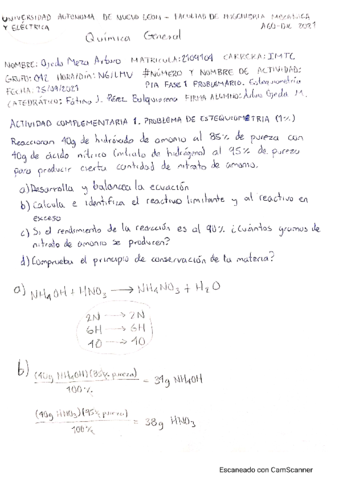 UNIVERSIDAD AUTONOMA DE NUEVO LEON - FACULTAD DE INGENIERIA MECANICA
Y ELÉCTRICA AGO-DIC 2021
Química General
NOMBRE: Ojeda Meza Arturo MATRICULA: 2109104 CARRERA: IMTC
GRUPO: 012 HORA/DIA: N6/LMV #NÚMERO Y NOMBRE DE ACTIVIDAD:
FECHA: 25/09/2021 PIA FASE 1 PROBLEMARIO. Estequiometría
CATEDRÁTICO: Fátima J. Pérez Balquiarena FIRMA ALUMNO: Arturo Ojeda M.
ACTIVIDAD COMPLEMENTARIA 1. PROBLEMA DE ESTEQUIOMETRÍA (1%)
Reaccionan 40g de hidróxido de amonio al 85% de pureza con
40g de ácido nítrico (nitrato de hidrógeno) al 95% de pureza
para producir cierta cantidad de nitrato de amonio.
a) Desarrolla y balancea la ecuación
b) Calcula e identifica el reactivo limitante y al reactivo en
exceso
c) Si el rendimiento de la reacción es al 90% ¿Cuántos gramos de
nitrato de amonio se producen?
d) ¿Comprueba el principio de conservación de la materia?
a) NH4OH + HNO3 → NH4NO3 + H2O
2N → 2N
6H → 6H
4O → 4O
b)
(40g NH4OH)(85% pureza) = 34g NH4OH
100%
(40g HNO3)(95% pureza) = 38g HNO3
100%
Escaneado con CamScanner